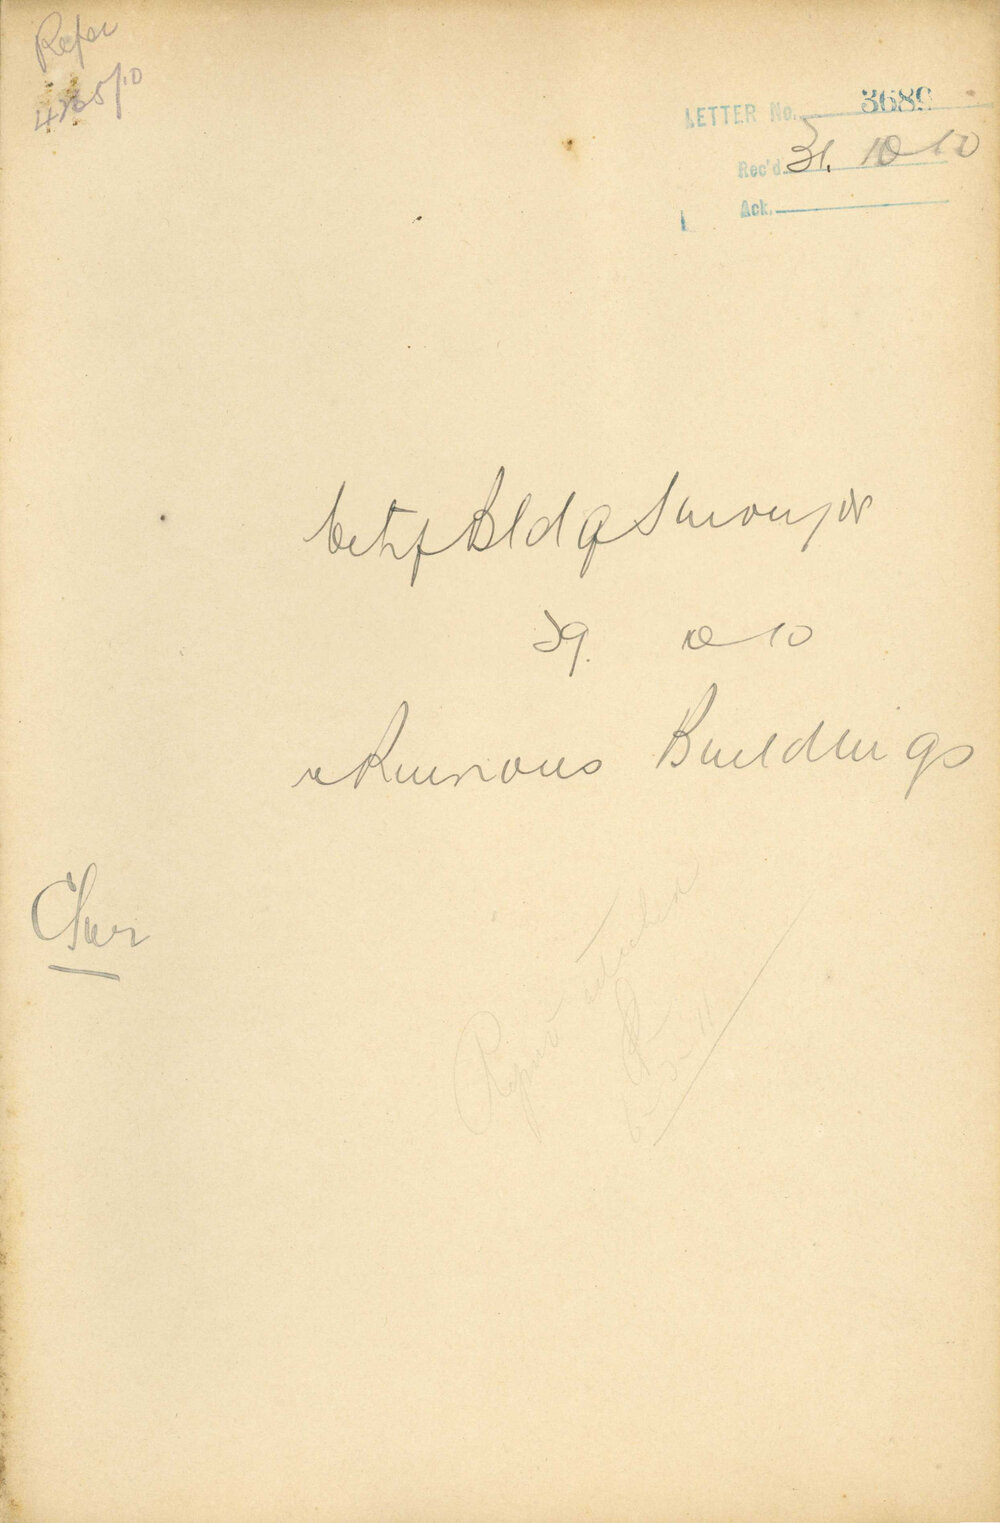 Refer
4265/10
LETTER No. 3689
Rec'd. 31. 10 10
Ack.
City Bldg Surveyor
29. 10 10
r Ruinous Buildings
Report attached